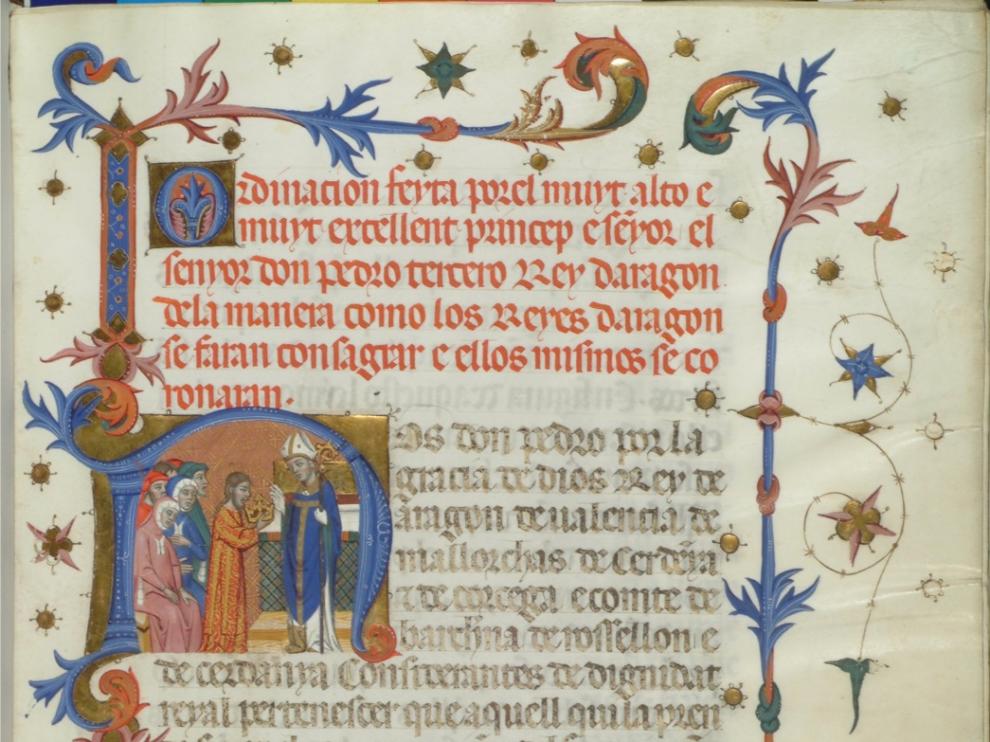 Ordinacion feyta por el muyt alto e
muyt excellent princep e senyor el
senyor don pedro tercero Rey daragon
de la manera como los Reyes daragon
se faran consagrar e ellos mismos se co
ronaran.
Nos don pedro por la
gracia de dios Rey de
aragon de ualencia de
mallorchas de Cerdenya
e de corcega e comte de
barchna de rossellon e
de cerdanya Considerantes de dignidat
reyal pertenescer que aquell qui la pren